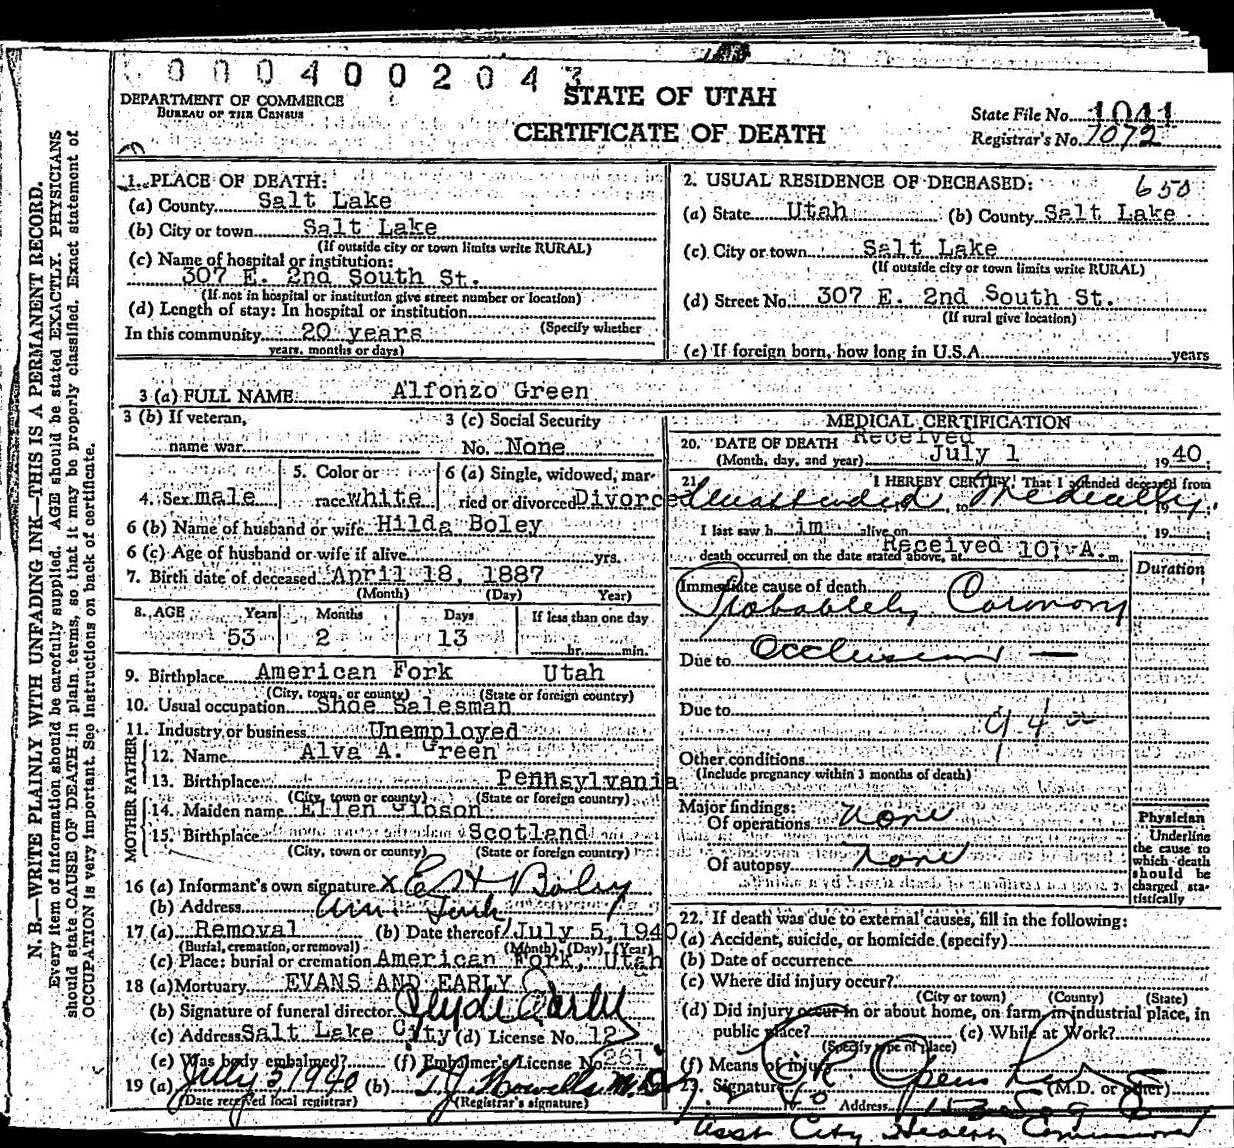 0004002043
DEPARTMENT OF COMMERCE
BUREAU OF THE CENSUS
STATE OF UTAH
CERTIFICATE OF DEATH
State File No. 1041
Registrar's No. 1072
N. B.—WRITE PLAINLY WITH UNFADING INK—THIS IS A PERMANENT RECORD.
Every item of information should be carefully supplied. AGE should be stated EXACTLY. PHYSICIANS
should state CAUSE OF DEATH in plain terms, so that it may be properly classified. Exact statement of
OCCUPATION is very important. See instructions on back of certificate.
1. PLACE OF DEATH:
(a) County Salt Lake
(b) City or town Salt Lake
(If outside city or town limits write RURAL)
(c) Name of hospital or institution:
307 E. 2nd South St.
(If not in hospital or institution give street number or location)
(d) Length of stay: In hospital or institution
(Specify whether
In this community 20 years
years, months or days)
2. USUAL RESIDENCE OF DECEASED: 650
(a) State Utah (b) County Salt Lake
(c) City or town Salt Lake
(If outside city or town limits write RURAL)
(d) Street No. 307 E. 2nd South St.
(If rural give location)
(e) If foreign born, how long in U.S.A. years
3 (a) FULL NAME Alfonzo Green
3 (b) If veteran,
name war
3 (c) Social Security
No. None
4. Sex male
5. Color or
race white
6 (a) Single, widowed, mar-
ried or divorced Divorced
6 (b) Name of husband or wife Hilda Boley
6 (c) Age of husband or wife if alive yrs.
7. Birth date of deceased April 18, 1887
(Month) (Day) Year)
8. AGE Years Months Days If less than one day
53 2 13 hr. min.
9. Birthplace American Fork Utah
(City, town, or county) (State or foreign country)
10. Usual occupation Shoe Salesman
11. Industry or business Unemployed
FATHER
12. Name Alva A. Green
13. Birthplace Pennsylvania
(City, town or county) (State or foreign country)
MOTHER
14. Maiden name Ellen Gibson
15. Birthplace Scotland
(City, town or county) (State or foreign country)
16 (a) Informant's own signature x E H Boley
(b) Address Am. Fork
17 (a) Removal (b) Date thereof July 5, 1940
(Burial, cremation, or removal) (Month) (Day) (Year)
(c) Place: burial or cremation American Fork, Utah
18 (a) Mortuary EVANS AND EARLY
(b) Signature of funeral director Clyde Early
(c) Address Salt Lake City (d) License No. 12
(e) Was body embalmed? (f) Embalmer's License No. 261
19 (a) July 3, 1940 (b) T. J. Howells M.D.
(Date received local registrar) (Registrar's signature)
MEDICAL CERTIFICATION
20. DATE OF DEATH Received
(Month, day, and year) July 1 1940
21. I HEREBY CERTIFY, That I attended deceased from
Unattended to Medically 19
I last saw h im alive on 19
death occurred on the date stated above, at Received 10: A. m.
Duration
Immediate cause of death
Probablely Coronory
Due to Occlusion —
Due to
94
Other conditions
(Include pregnancy within 3 months of death)
Major findings:
Of operations None
Of autopsy None
Physician
Underline
the cause to
which death
should be
charged sta-
tistically
22. If death was due to external causes, fill in the following:
(a) Accident, suicide, or homicide (specify)
(b) Date of occurrence
(c) Where did injury occur?
(City or town) (County) (State)
(d) Did injury occur in or about home, on farm, in industrial place, in
public place? (e) While at Work?
(Specify type of place)
(f) Means of injury
Signature (M.D. or other)
Address
Asst City Health